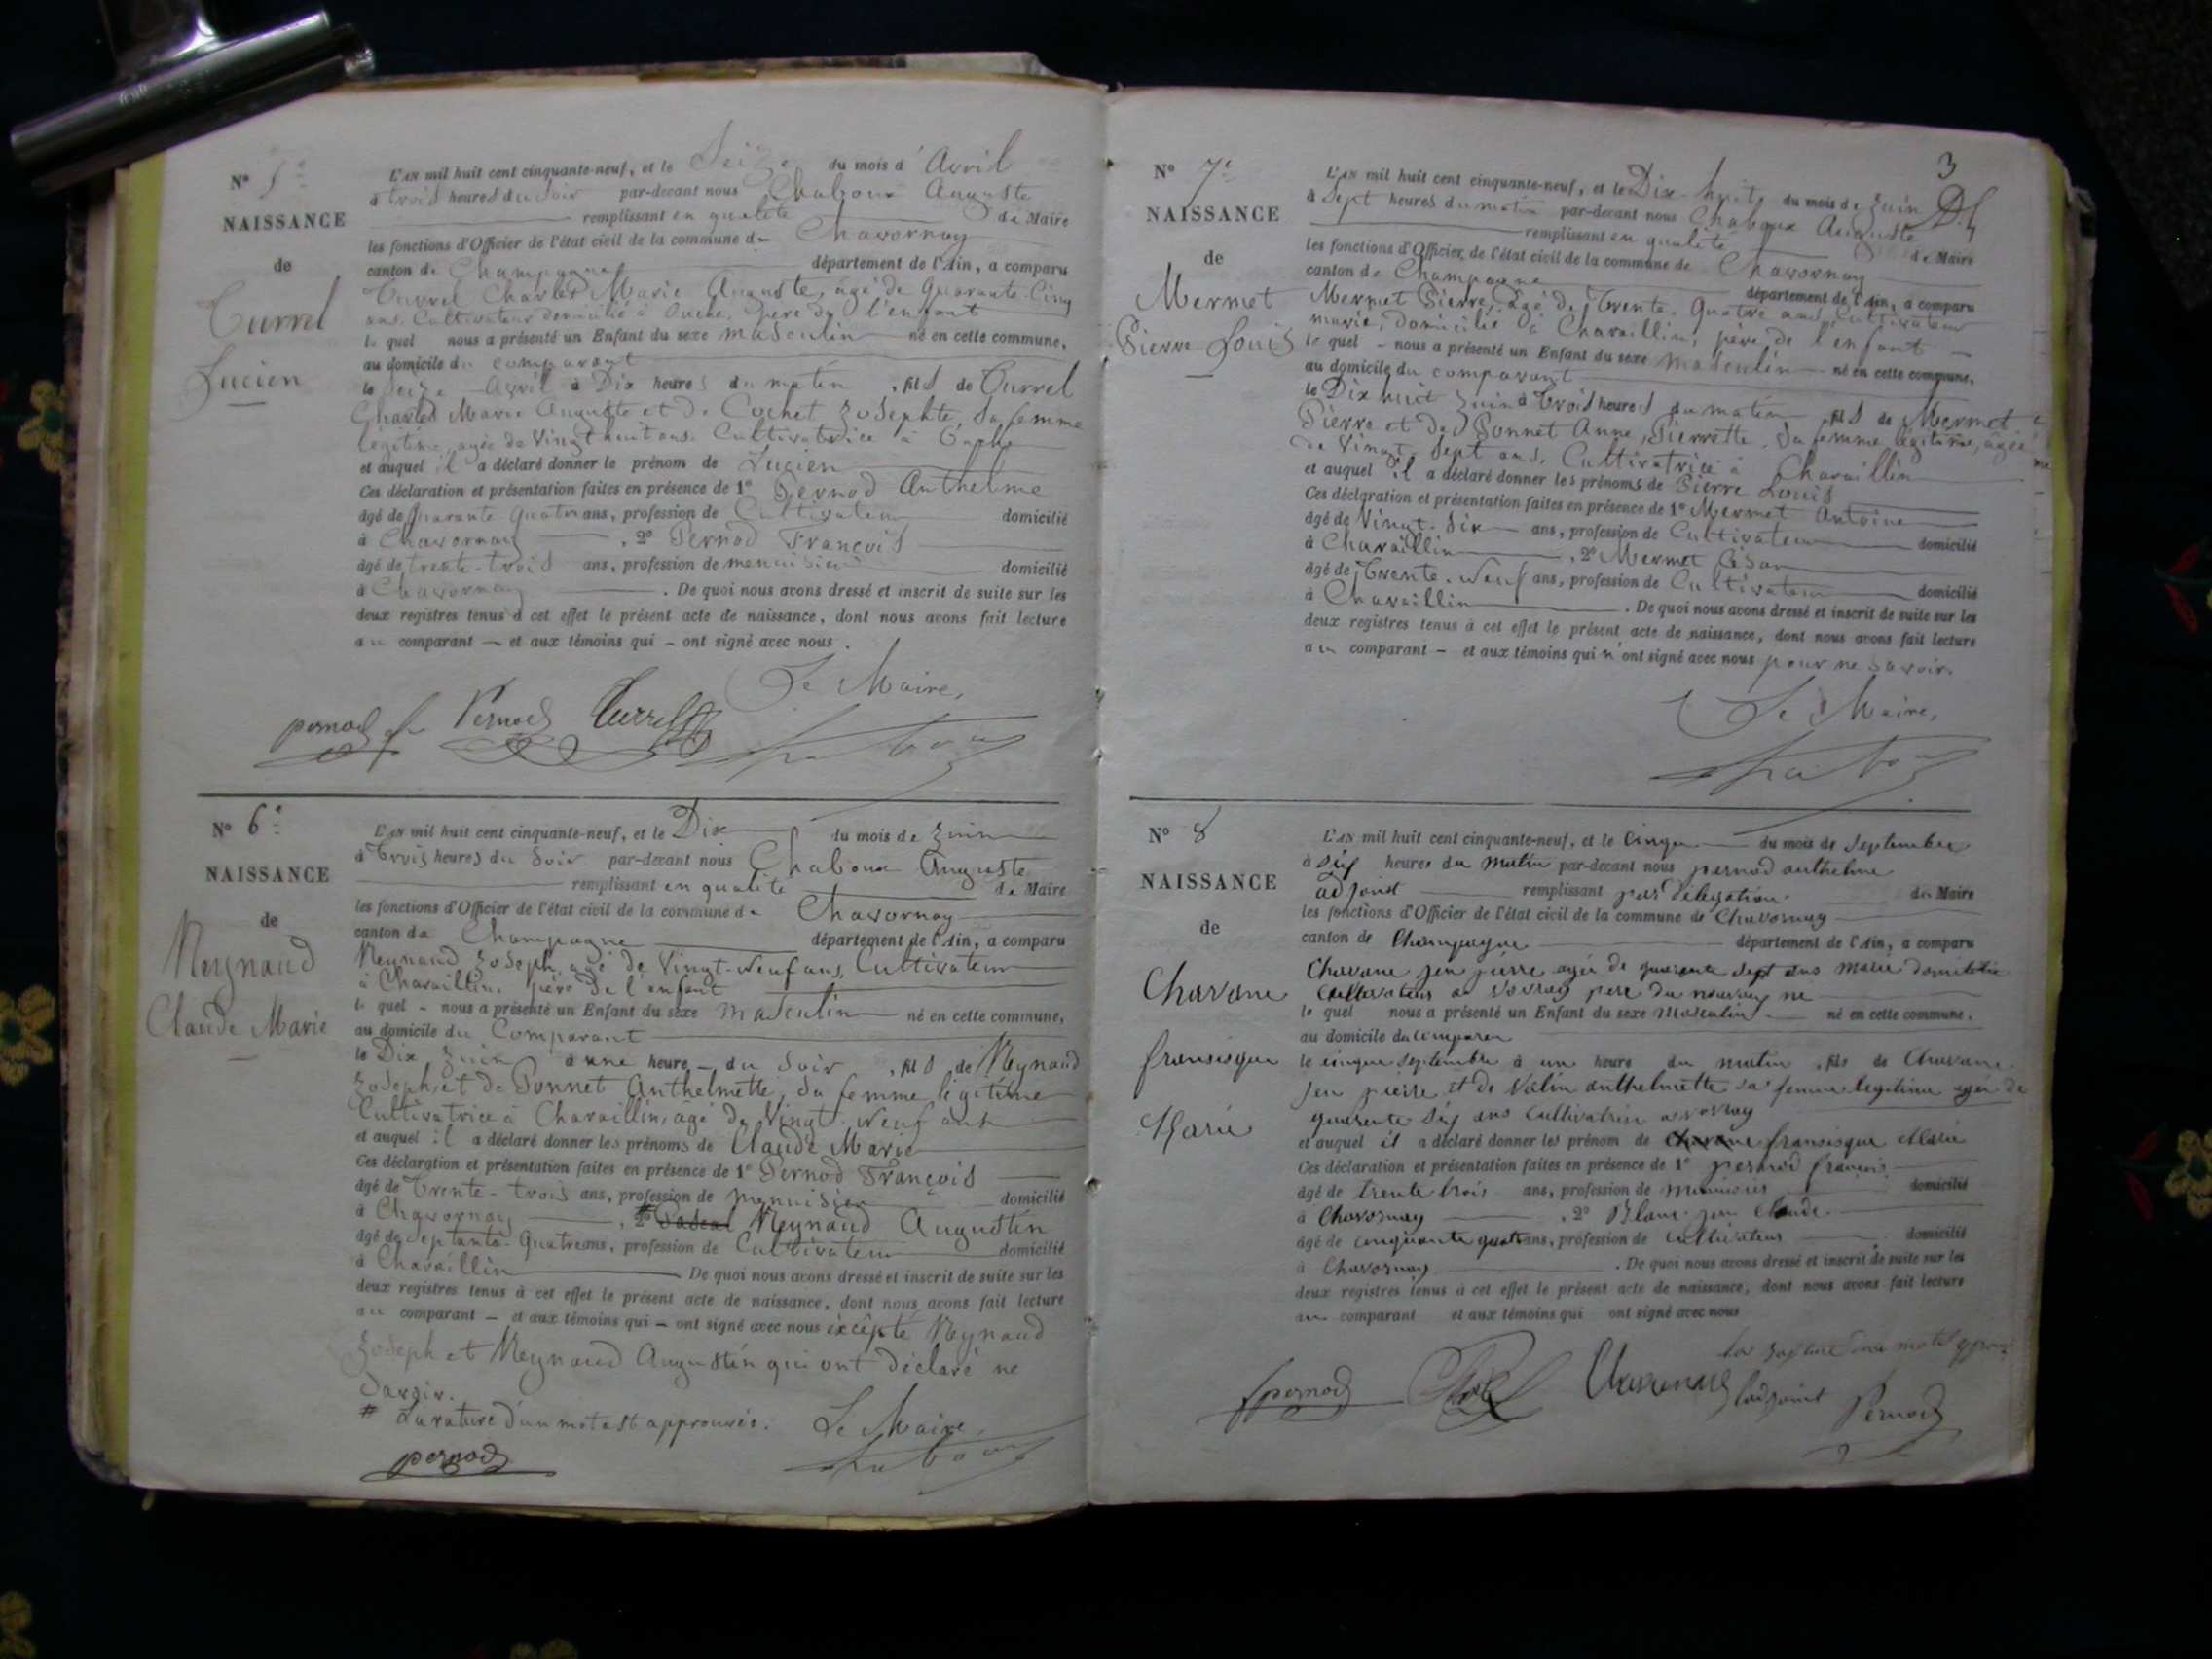 N° 5e
NAISSANCE
de
Turrel
Lucien
L'AN mil huit cent cinquante-neuf, et le Seize du mois d'Avril
à trois heures du soir par-devant nous Chaboux Auguste
remplissant en qualité de Maire
les fonctions d'Officier de l'état civil de la commune de Chavornay
canton de Champagne département de l'Ain, a comparu
Turrel Charles Marie Auguste, âgé de Quarante-Cinq
ans. Cultivateur domicilié à Ouche, père de l'enfant
lequel nous a présenté un Enfant du sexe masculin né en cette commune,
au domicile du comparant
le Seize Avril à Dix heures du matin, fils de Turrel
Charles Marie Auguste et de Cochet Josephte, sa femme
légitime, agée de Vingt huit ans. Cultivatrice à
et auquel il a déclaré donner le prénom de Lucien
Ces déclaration et présentation faites en présence de 1° Pernod Anthelme
âgé de Quarante Quatre ans, profession de Cultivateur domicilié
à Chavornay, 2° Pernod François
âgé de trente-trois ans, profession de menuisier domicilié
à Chavornay. De quoi nous avons dressé et inscrit de suite sur les
deux registres tenus à cet effet le présent acte de naissance, dont nous avons fait lecture
au comparant — et aux témoins qui - ont signé avec nous.
Le Maire,
pernod f Pernod Turrel Chaboux
N° 6e
NAISSANCE
de
Reynaud
Claude Marie
L'AN mil huit cent cinquante-neuf, et le Dix du mois de Juin
à Trois heures du Soir par-devant nous Chaboux Auguste
remplissant en qualité de Maire
les fonctions d'Officier de l'état civil de la commune de Chavornay
canton de Champagne département de l'Ain, a comparu
Reynaud Joseph, agé de Vingt-Neuf ans, Cultivateur
à Charaillin, père de l'enfant
lequel - nous a présenté un Enfant du sexe masculin né en cette commune,
au domicile du Comparant
le Dix Juin à une heure - du Soir, fils de Reynaud
Joseph, et de Ponnet Anthelmette, sa femme légitime
Cultivatrice à Charaillin, agé de Vingt-Neuf ans
et auquel il a déclaré donner les prénoms de Claude Marie
Ces déclaration et présentation faites en présence de 1° Pernod François
âgé de Trente-trois ans, profession de Menuisier domicilié
à Chavornay, # 2° Pascal Reynaud Augustin
âgé de Septante-Quatre ans, profession de Cultivateur domicilié
à Charaillin De quoi nous avons dressé et inscrit de suite sur les
deux registres tenus à cet effet le présent acte de naissance, dont nous avons fait lecture
au comparant — et aux témoins qui - ont signé avec nous excepté Reynaud
Joseph et Reynaud Augustin qui ont déclaré ne
savoir.
# La rature d'un mot est approuvée. Le Maire,
pernod Chaboux
3
N° 7e
NAISSANCE
de
Mermet
Pierre Louis
L'AN mil huit cent cinquante-neuf, et le Dix-huit du mois de Juin
à Sept heures du matin par-devant nous Chaboux Auguste
remplissant en qualité de Maire
les fonctions d'Officier de l'état civil de la commune de Chavornay
canton de Champagne département de l'Ain, a comparu
Mermet Pierre, âgé de Trente-Quatre ans Cultivateur
marié, domicilié à Charaillin, père de l'enfant
lequel - nous a présenté un Enfant du sexe masculin né en cette commune,
au domicile du comparant
le Dix huit Juin à Trois heures du matin, fils de Mermet
Pierre et de Ponnet Anne, Pierrette, sa femme légitime, âgée
de Vingt-Sept ans, Cultivatrice à Charaillin
et auquel il a déclaré donner les prénoms de Pierre Louis
Ces déclaration et présentation faites en présence de 1° Mermet Antoine
âgé de Vingt-Six ans, profession de Cultivateur domicilié
à Charaillin, 2° Mermet César
âgé de Trente-Neuf ans, profession de Cultivateur domicilié
à Charaillin. De quoi nous avons dressé et inscrit de suite sur les
deux registres tenus à cet effet le présent acte de naissance, dont nous avons fait lecture
au comparant - et aux témoins qui n'ont signé avec nous pour ne savoir.
Le Maire,
Chaboux
N° 8
NAISSANCE
de
Chavane
fransisque
Marie
L'AN mil huit cent cinquante-neuf, et le cinque du mois de Septembre
à six heures du matin par-devant nous pernod anthelme
adjoint remplissant par délégation du Maire
les fonctions d'Officier de l'état civil de la commune de Chavornay
canton de Champagne département de l'Ain, a comparu
Chavane jen pierre agée de quarente sept ans marié domicilie
cultivateur a vovray pere du nouveau ne
le quel nous a présenté un Enfant du sexe Masculin né en cette commune.
au domicile du comparen
le cinque septembre à un heure du matin, fils de Chavane
jen pierre et de Valin anthelmette sa femme legitime agee de
quarente six ans cultivatrice a vovray
et auquel il a déclaré donner les prénom de Chavane fransisque Marie
Ces déclaration et présentation faites en présence de 1° pernod françois
âgé de trente trois ans, profession de menuisier domicilié
à Chavornay, 2° Blanc jen Claude
âgé de cinquante quatre ans, profession de cultivateur domicilié
à Chavornay. De quoi nous avons dressé et inscrit de suite sur les
deux registres tenus à cet effet le présent acte de naissance, dont nous avons fait lecture
au comparant et aux témoins qui ont signé avec nous
fpernod Chavane ladjoint Pernod